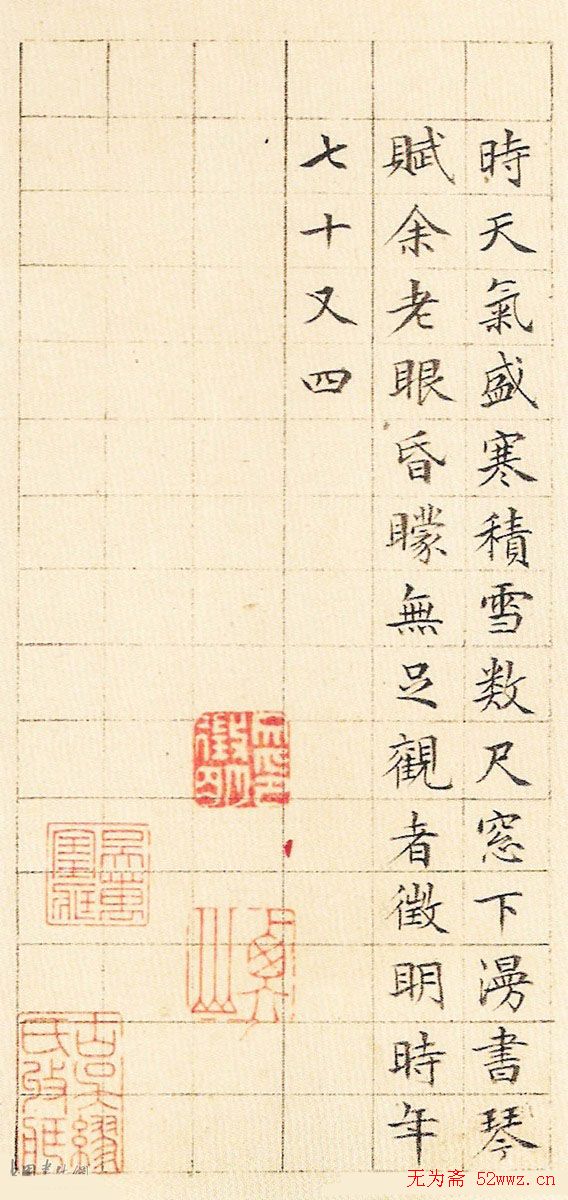 時天氣盛寒積雪数尺窓下漫書琴
賦余老眼昏矇無足觀者徵明時年
七十又四
无为斋 52wwz.cn